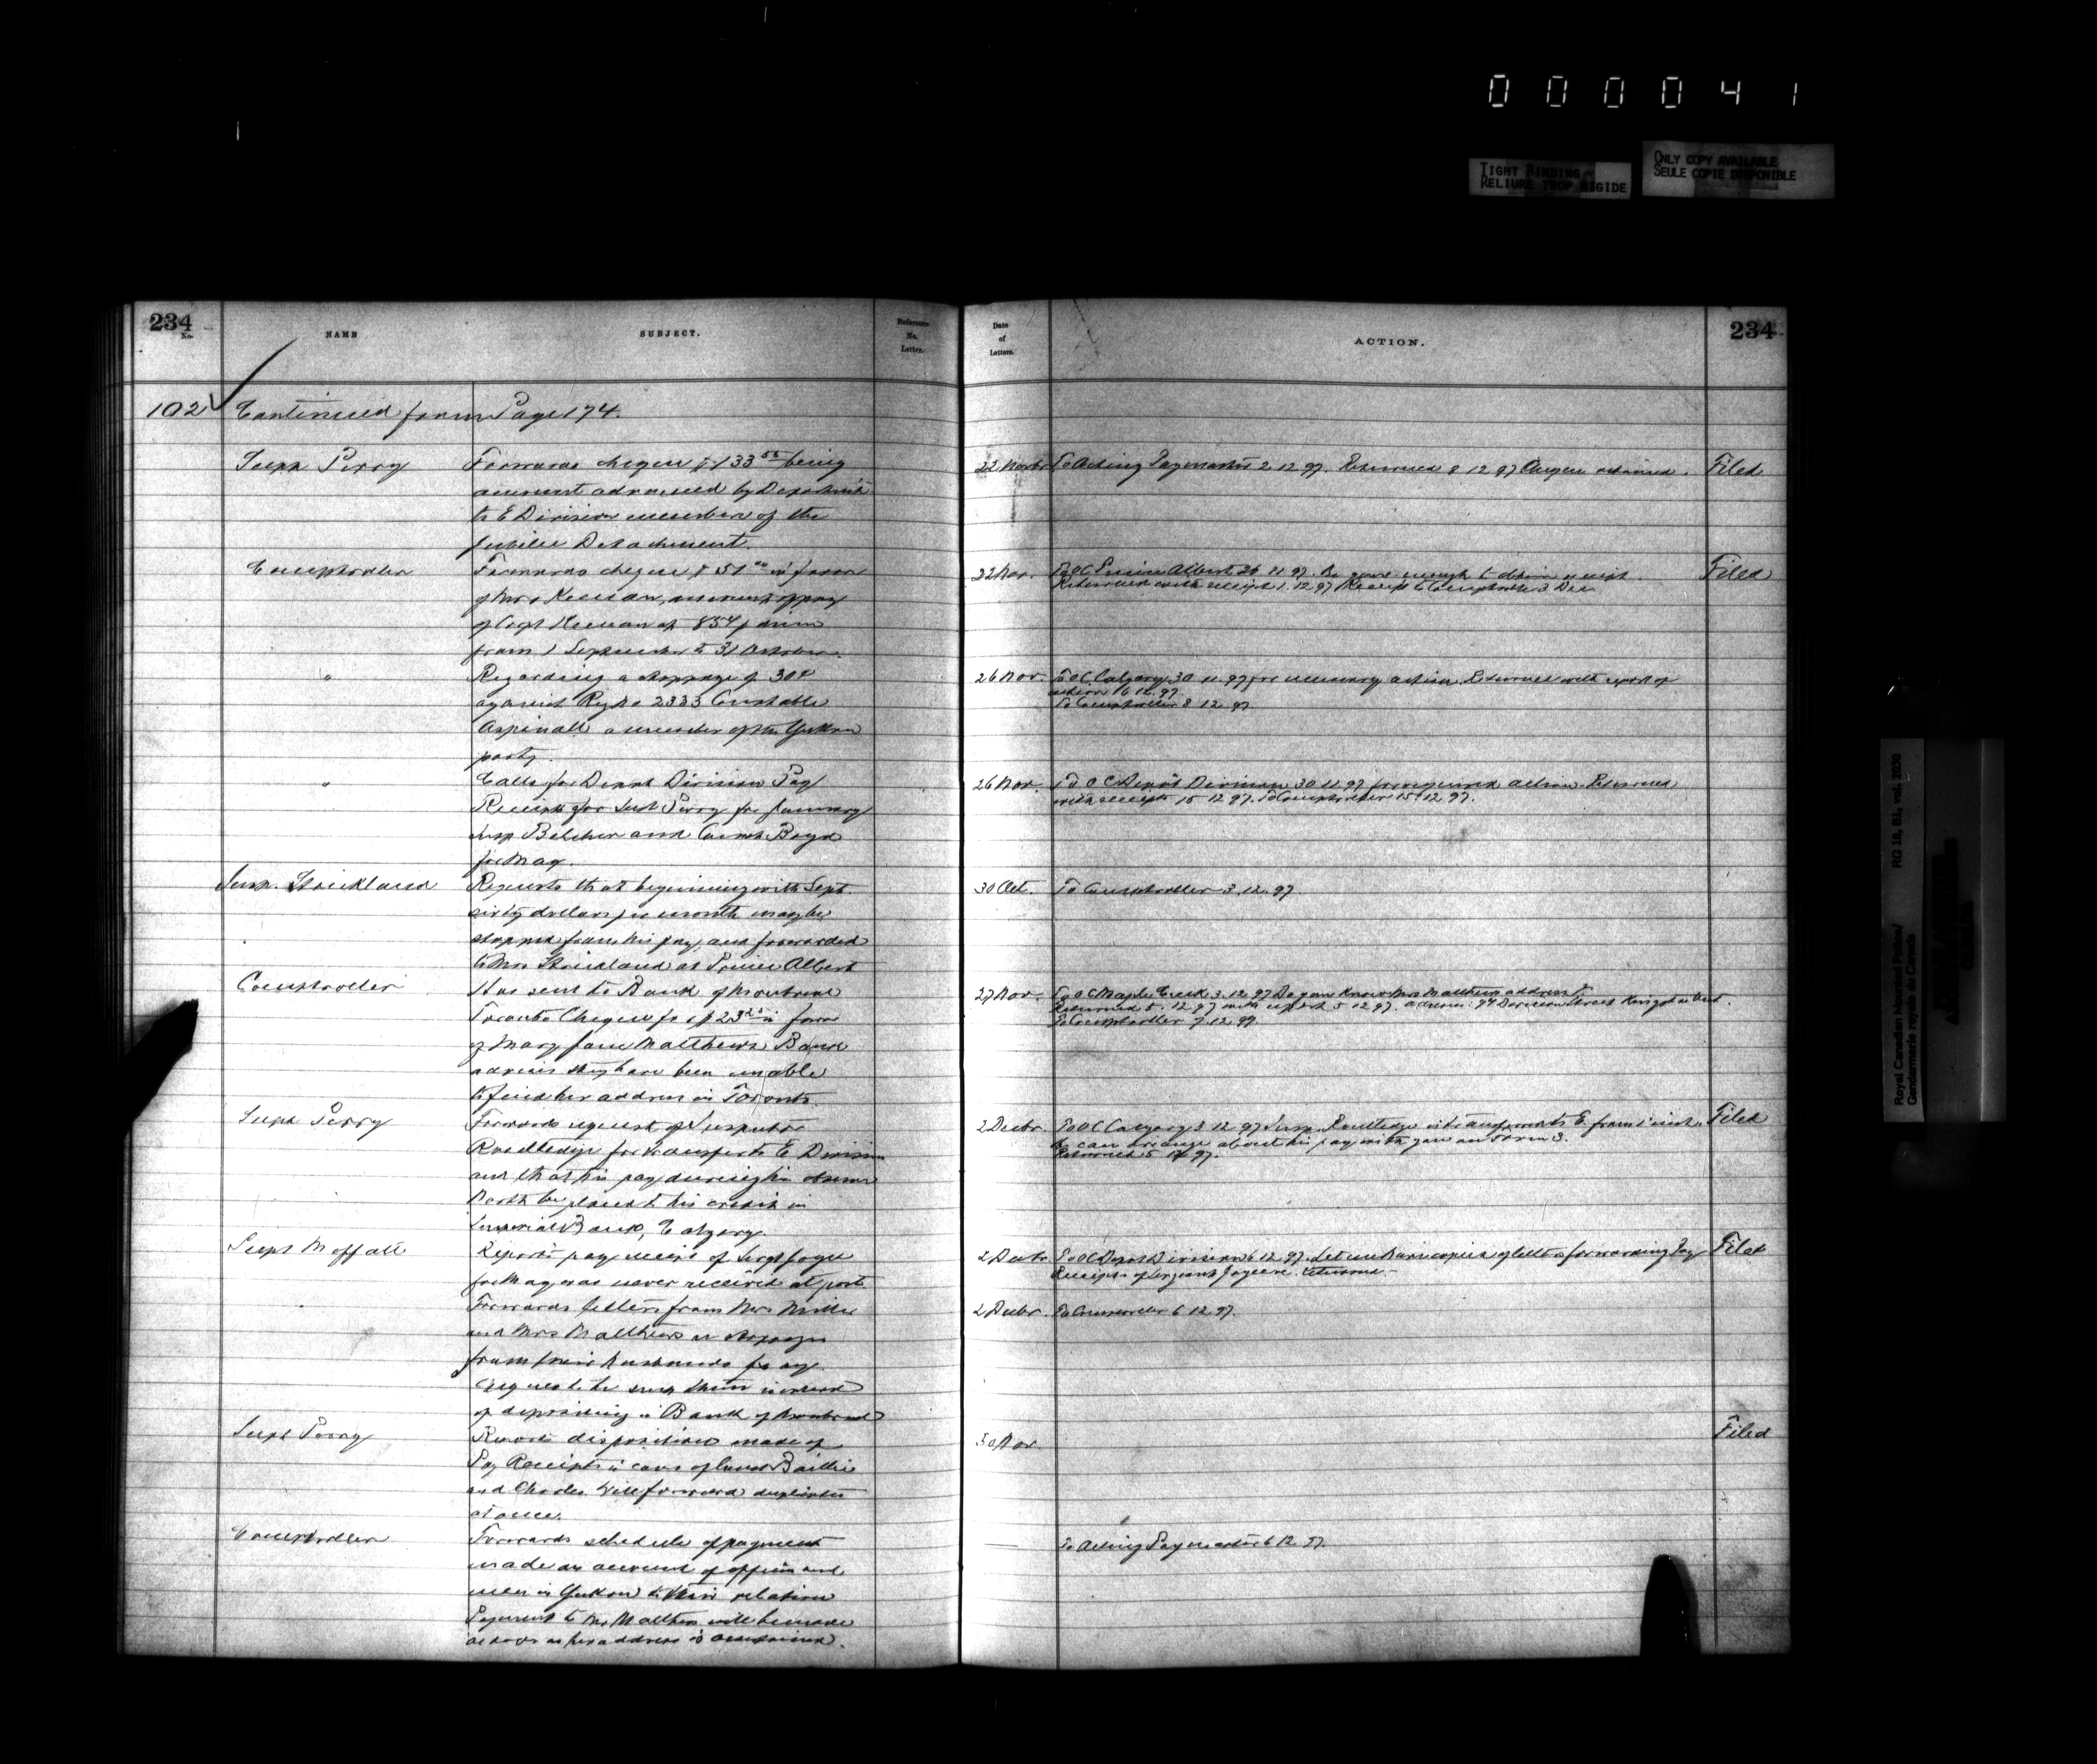 000041
TIGHT BINDING
RELIURE TROP RIGIDE
ONLY COPY AVAILABLE
SEULE COPIE DISPONIBLE
234
No.
NAME
SUBJECT.
Reference
No.
Letter.
102 Continued from Page 174.
Supt Perry
Forwards cheque $133 being
amount advanced by Department
to E Division member of the
Jubilee Detachment.
Comptroller
Forwards cheque $51 in favor
of Mrs Keenan, amount of pay
of Corpl Keenan at 85¢ p diem
from 1 September to 31 October.
"
Regarding a stoppage of 30¢
against Reg No 2333 Constable
Aspinall a member of the Yukon
party.
"
Calls for Depot Division Pay
Receipts for Supt Perry for January
Insp Belcher and Const Boyd
for May.
Insp. Strickland
Requests that beginning with Sept
sixty dollars per month may be
stopped from his pay, and forwarded
to Mrs Strickland at Prince Albert
Comptroller
Has sent to Bank of Montreal
Toronto Cheque for $23 in favor
of Mary Jane Matthews. Bank
advises they have been unable
to find her address in Toronto.
Supt Perry
Forwards request of Inspector
Routledge for transfer to E Division
and that his pay during his absence
North be placed to his credit in
Imperial Bank, Calgary.
Supt Moffatt
Reports pay receipt of Sergt Joyce
for May was never received at post.
Forwards letters from Mrs Miller
and Mrs Matthews re stoppages
from their husbands pay.
Request to send them instead
of depositing in Bank of Montreal
Supt Perry
Reports disposition made of
Pay Receipts in case of Const Baillie
and Charles Will forward duplicates
at once.
Comptroller
Forwards schedule of payment
made on account of officers and
men in Yukon to their relation
Payment to Mrs Matthews will be made
as soon as her address is ascertained.
Date
of
Letters.
ACTION.
234
22 Novbr To Acting Paymaster 2 12 97. Returned 8 12 97 Cheque retained. Filed
22 Nov. To OC Prince Albert 26 11 97. Be good enough to obtain receipt. Filed
Returned with receipt 1 12 97 Receipt to Comptroller 3 Dec
26 Nov. To OC Calgary 30 11 97 for necessary action. Returned with report of
action 6 12 97.
To Comptroller 8 12 97
26 Nov. To OC Depôt Division 30 11 97 for required action. Returned
with receipts 15 12 97. To Comptroller 15 12 97.
30 Oct. To Comptroller 3.12.97.
27 Nov. To OC Maple Creek 3.12.97 Do you know Mrs Matthews address?
Returned 5.12.97 with report 5 12 97. address: 94 Division Street Kingston Ont.
To Comptroller 7.12.97
2 Decbr. To OC Calgary 3 12 97 Insp. Routledge is transferred to E. from 1 inst. Filed
He can arrange about his pay with you on Form 3.
Returned 5 12 97.
2 Decbr To OC Depot Division 6 12 97. Let me have copies of letters forwarding Pay Filed
Receipts of Sergeant Joyce. Returned
2 Decbr. To Comptroller 6 12 97.
30 Nov. Filed
To Acting Paymaster 6 12 97
Royal Canadian Mounted Police/
Gendarmerie royale du Canada
RG 18, B1, vol. 2030